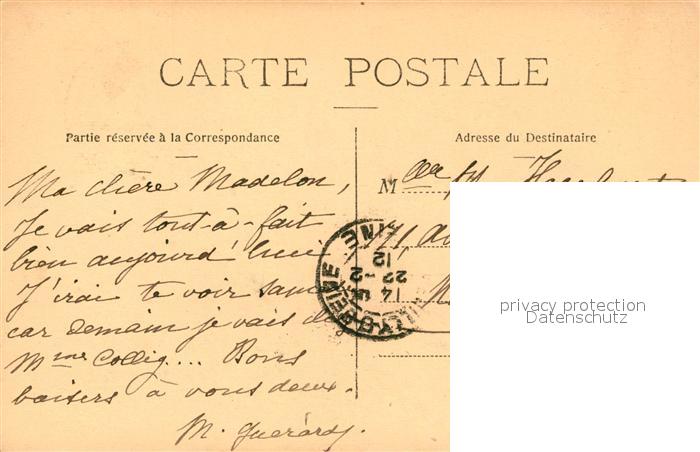 CARTE POSTALE
Partie réservée à la Correspondance
Adresse du Destinataire
Ma chère Madelon,
Je vais tout-à-fait
bien aujourd'hui
J'irai te voir
car demain je vais
Mme Collig.... Bons
baisers à vous deux.
M. Guérard.
M
171
14
22-2
12
privacy protection
Datenschutz